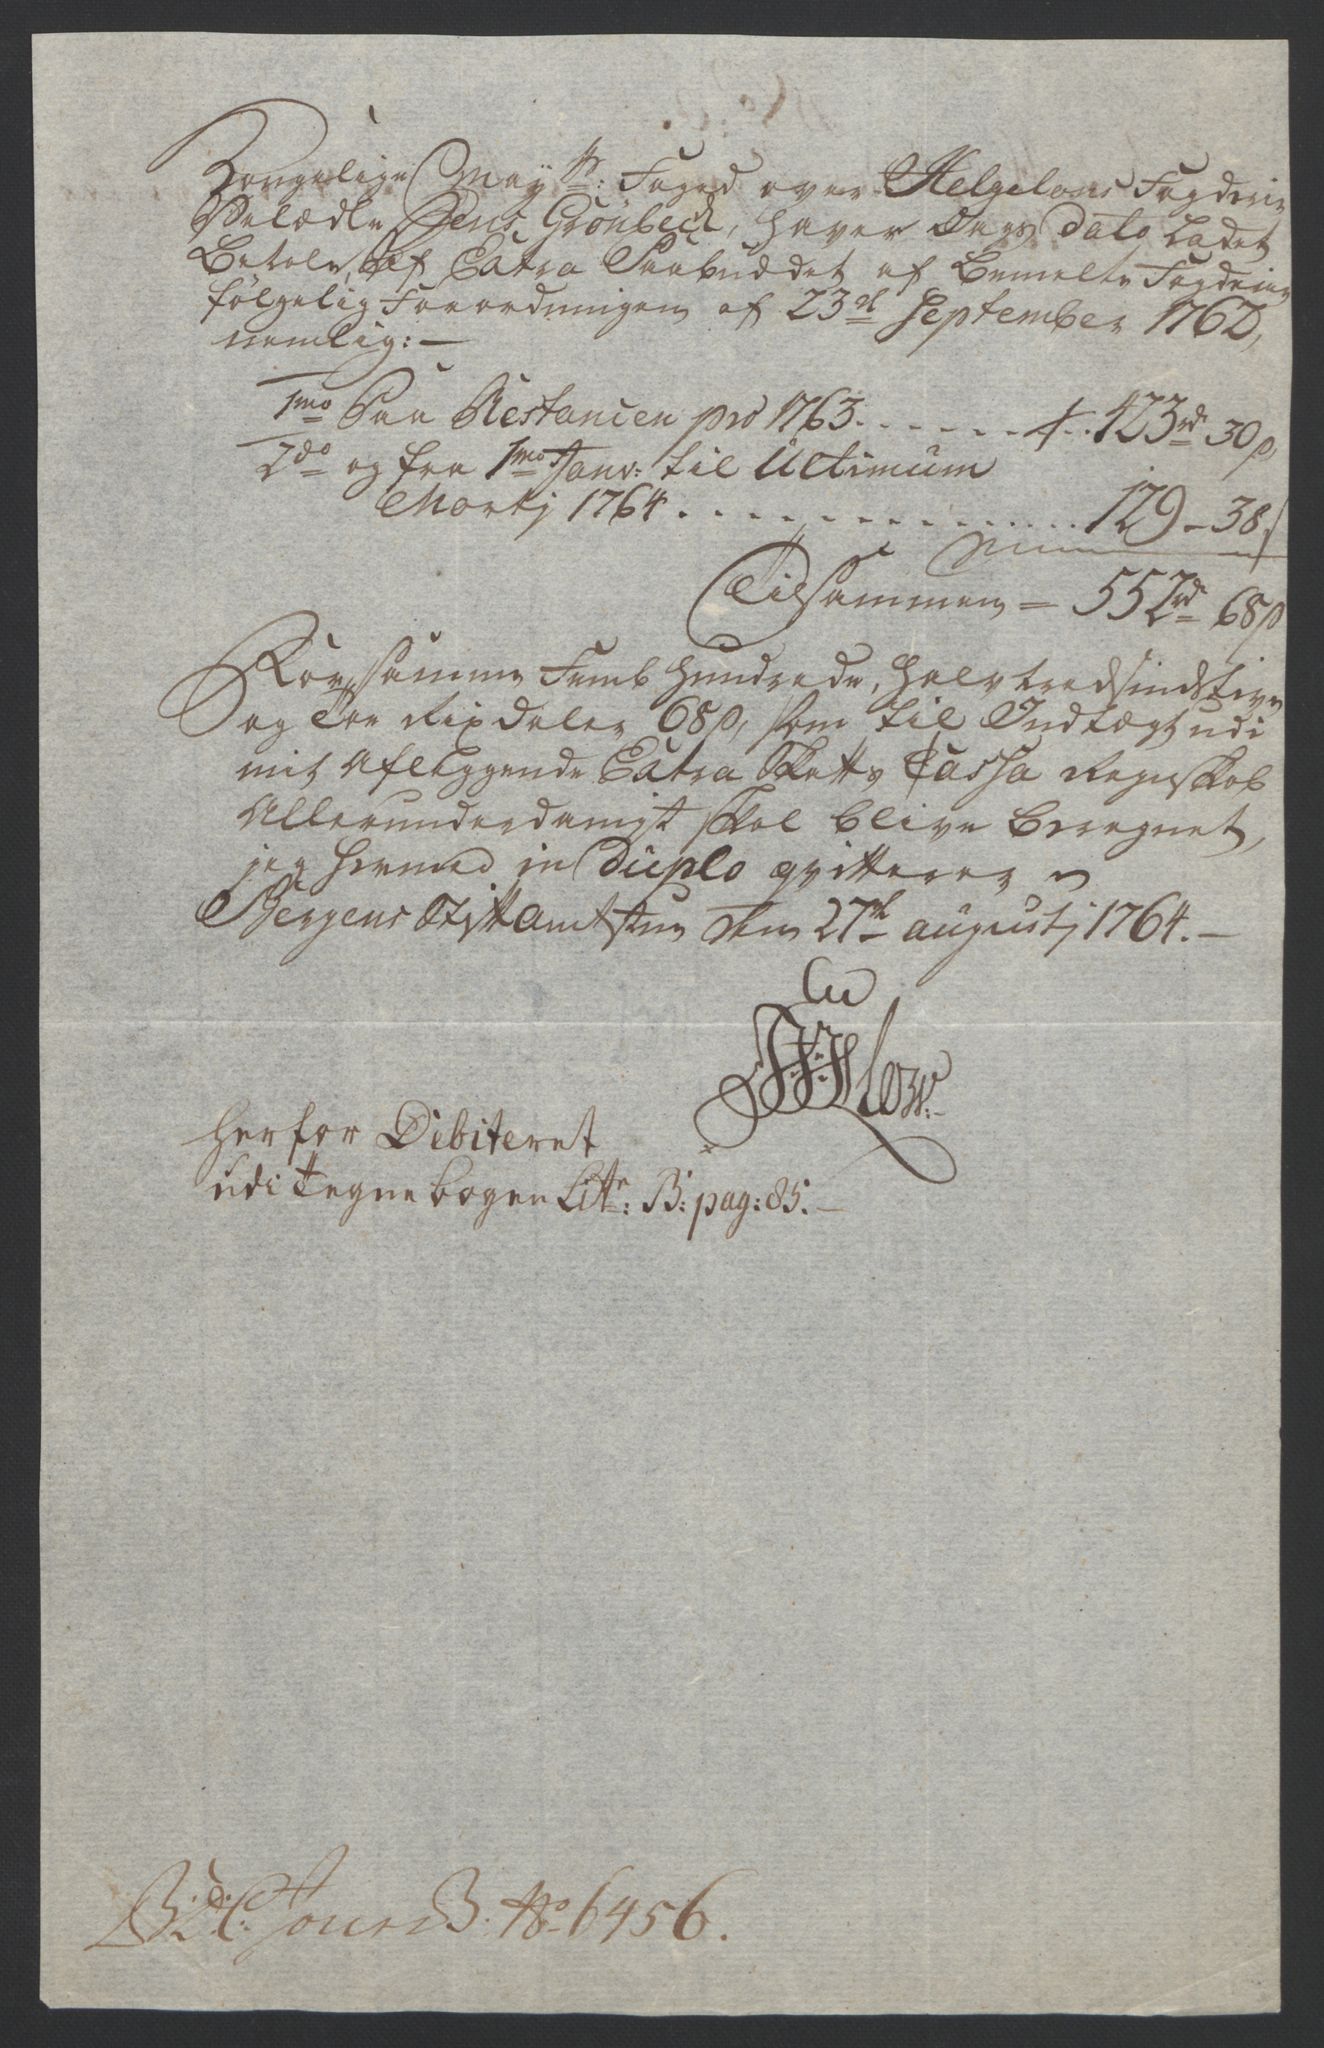 Kongelige May:ts: Foged over Helgelans Fogderie
Velædle Jens Grönbeck, haver Dags Dato Ladet
Betale, af Extra Paabuddet af bemelte Fogderie
følgelig Forordningen af 23de September 1762,
nemlig: —
1mo Paa Restancen pro 1763 . . . . . . . 423rd 30s,
2do og fra 1mo Janv: til Ultimum
Martij 1764 . . . . . . . . . . . . . . . 129 - 38s
Tilsammen = 552rd 68s
Hvor Summa Femb Hundrede, halvtredsindstive
og Toe Rixdaler 68s, som til Indtægt udi
mit aflæggende Extra Skatts Cassa Regnskab
Allerunderdanigst skal blive beregnet,
jeg hermed in Duplo qvitterer
Bergens Stiftamtstue den 27de augustj 1764. —
Low.
herfor Debiteret
udi Tegnebogen Litr: B: pag: 85. —
Jour B. No 6456.